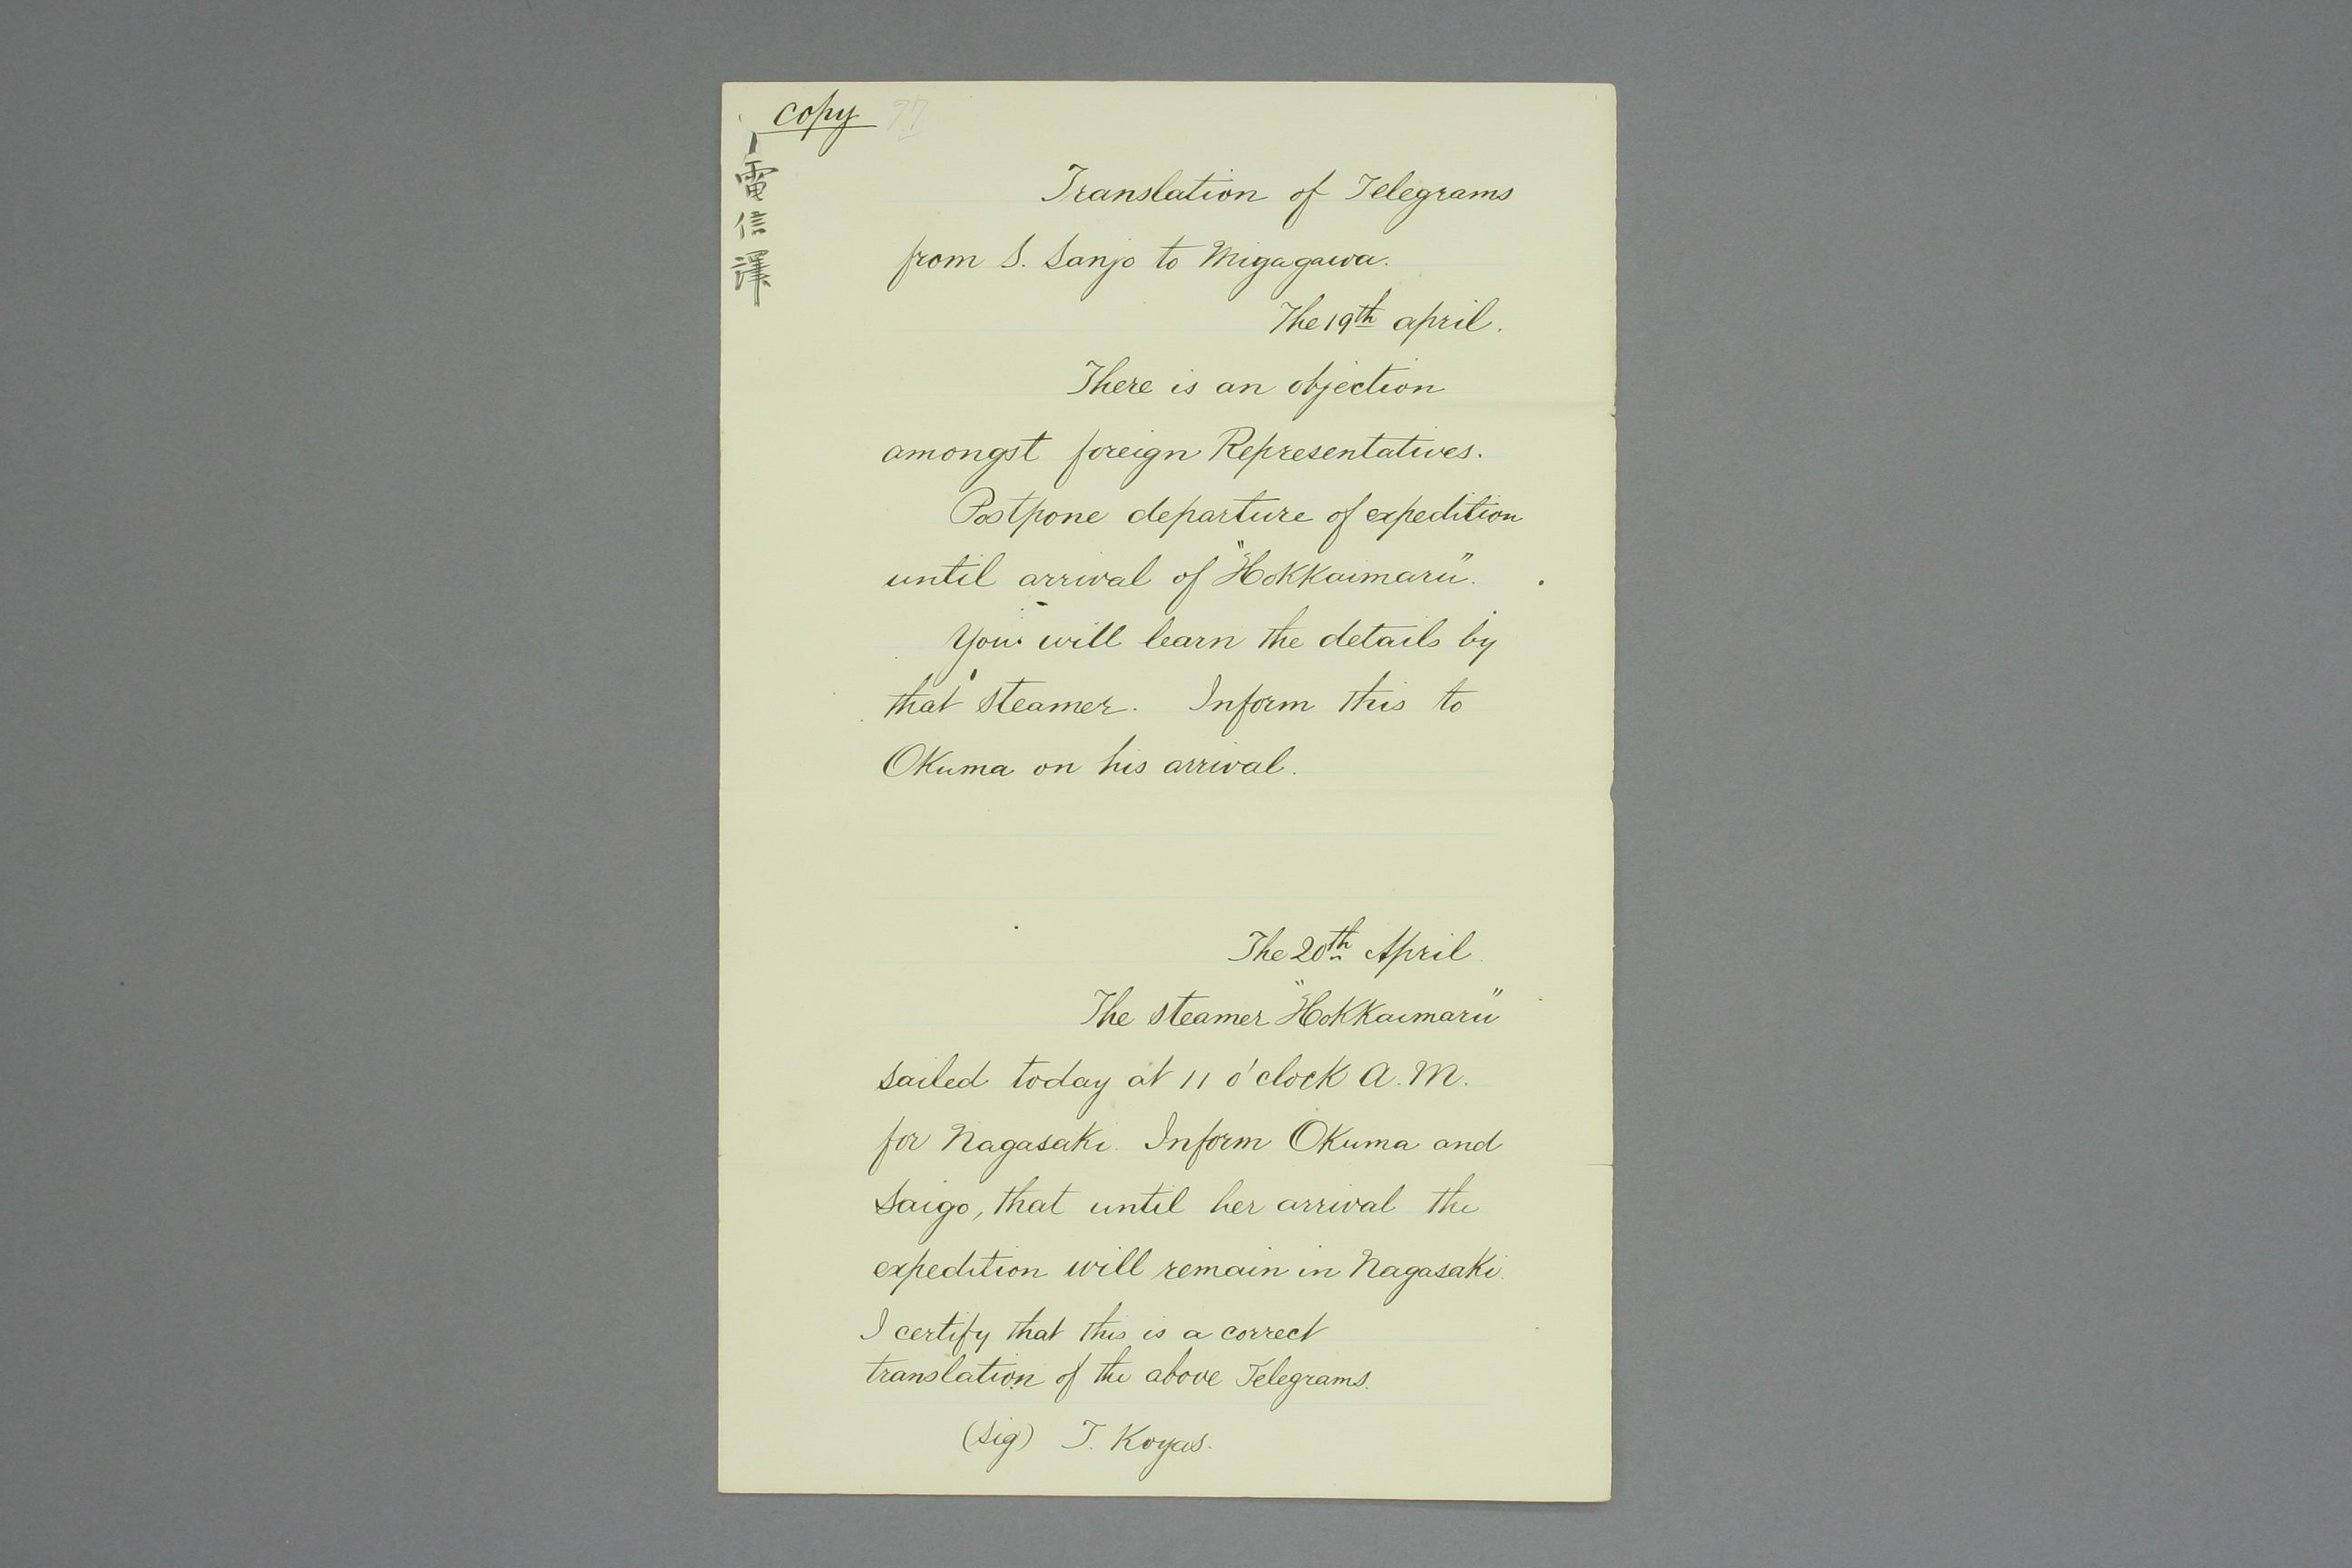 copy 77
電信譯
Translation of Telegrams
from S. Sanjo to Miyagawa.
The 19th april.
There is an objection
amongst foreign Representatives.
Postpone departure of expedition
until arrival of "Hokkaimaru".
You will learn the details by
that steamer. Inform this to
Okuma on his arrival.
The 20th April
The steamer "Hokkaimaru"
sailed today at 11 o'clock A.M.
for Nagasaki. Inform Okuma and
Saigo, that until her arrival the
expedition will remain in Nagasaki.
I certify that this is a correct
translation of the above Telegrams.
(sig) T. Koyas.